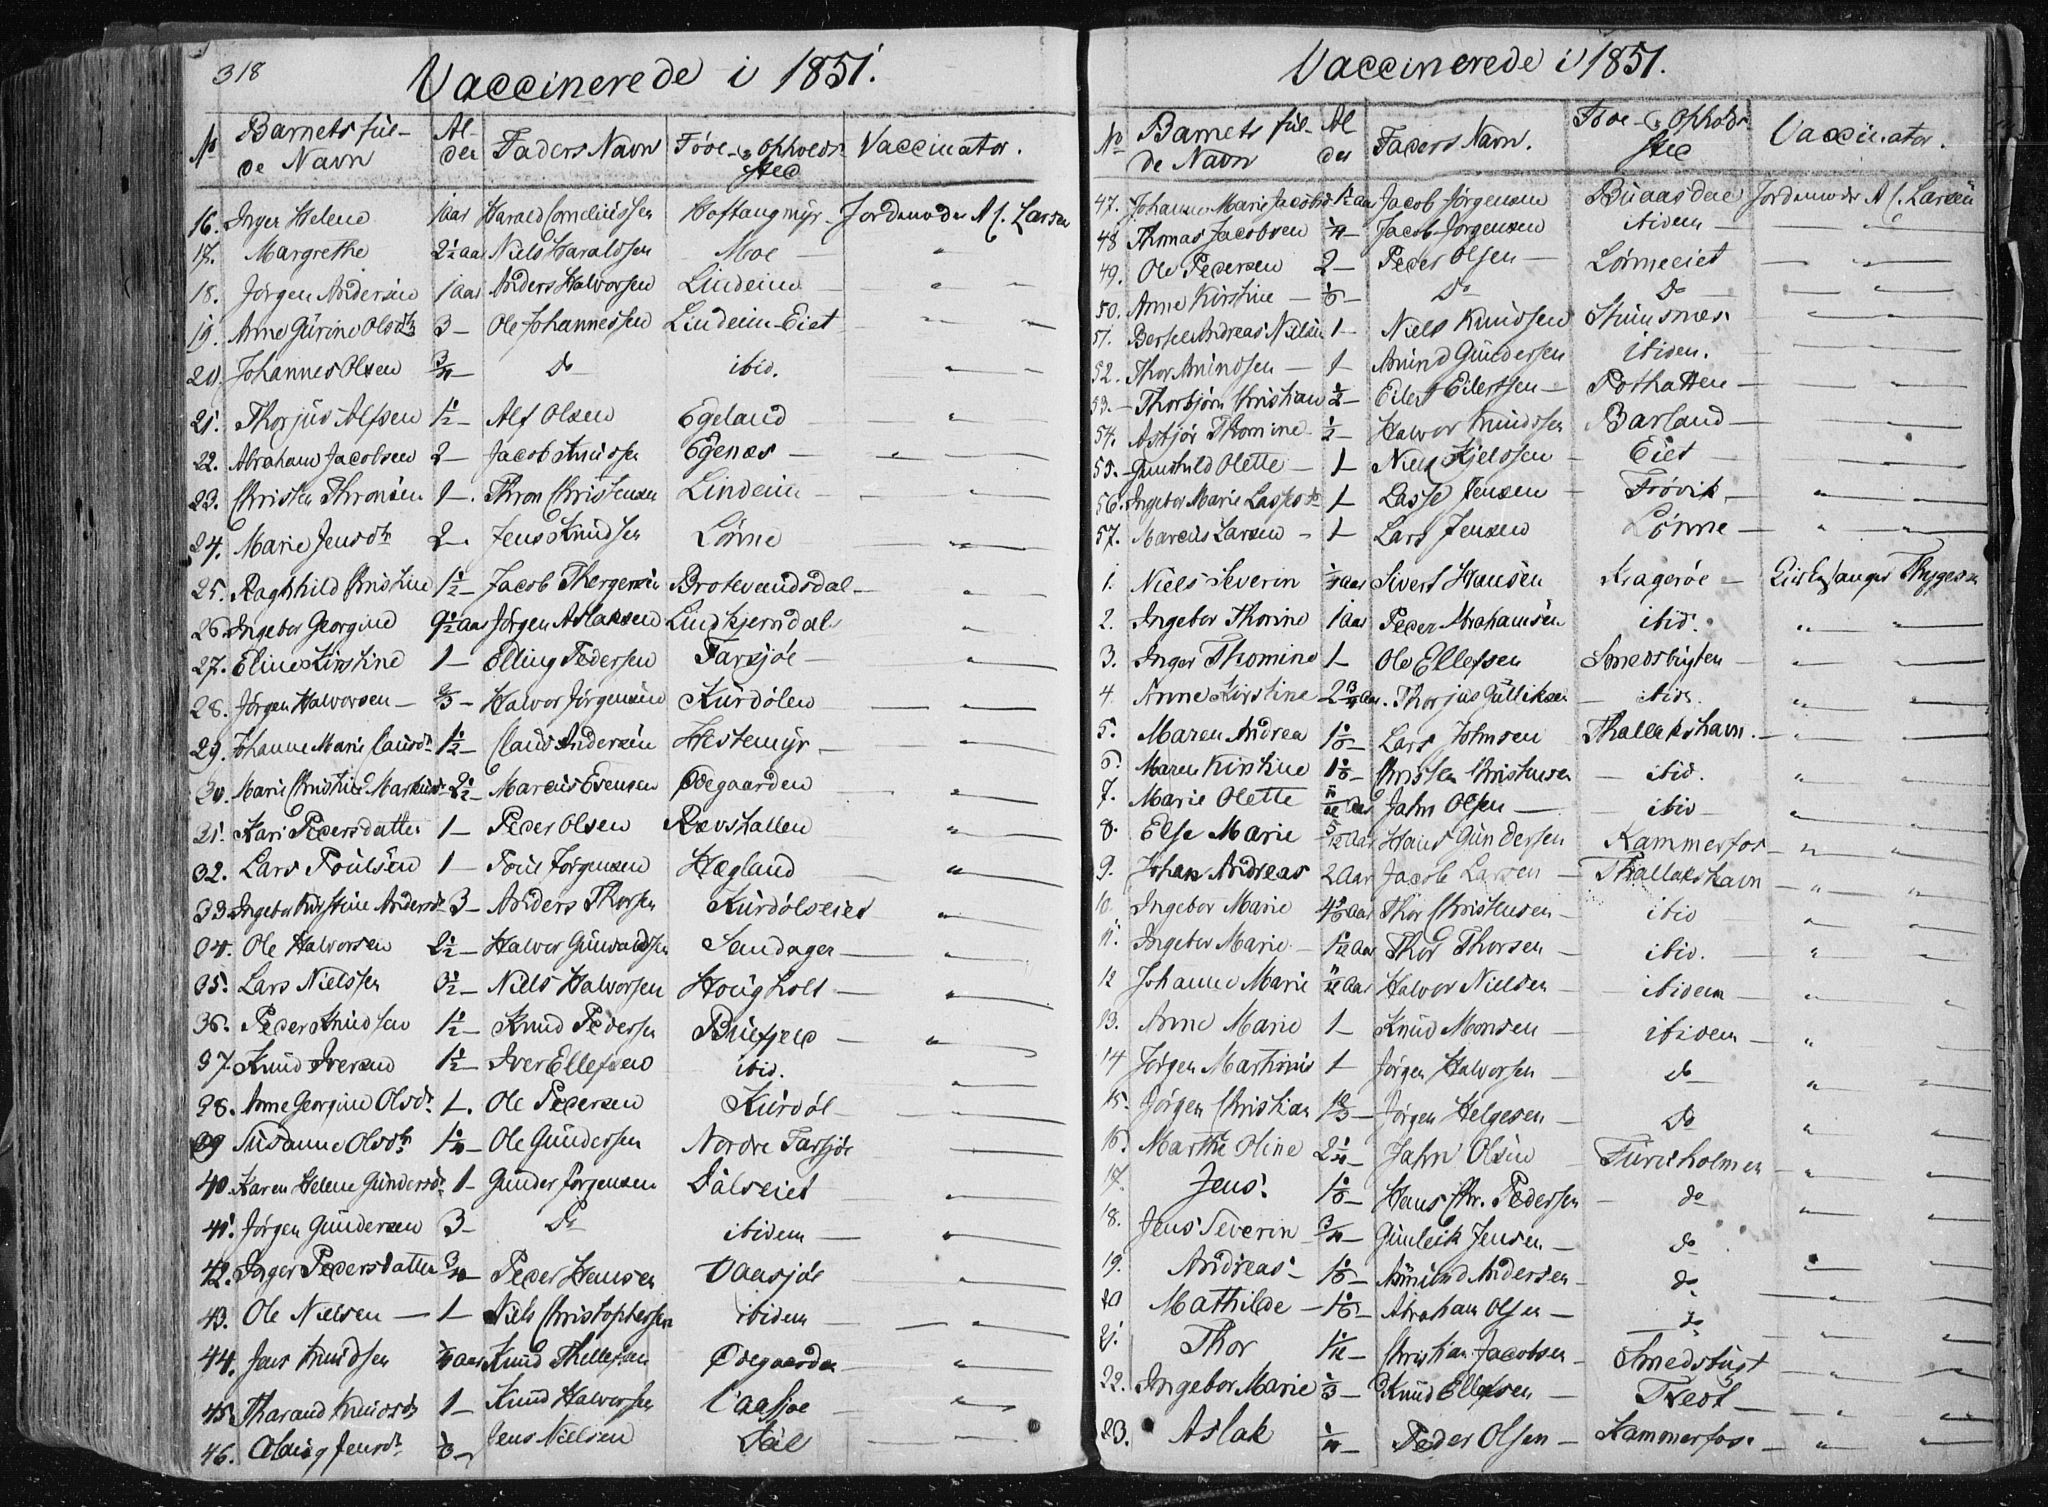 318
Vaccinerede i 1851.
No Barnets ful-
de Navn
Al-
der
Faders Navn
Føde- og Opholds
sted
Vaccinator.
16. Inger Helene 1 aar Harald Corneliussen Hoftangmyr Jordemoder A C. Larsen
17. Margrethe 2½ aar Niels Haraldsen Moe — "
18. Jörgen Andersen 1 aar Anders Halvorsen Lindeim — " —
19. Anne Gurine Olsdt 3 — Ole Johannessen Lindeim-Eiet — " —
20. Johannes Olsen ¾ — Do ibid. — " —
21. Thorjus Alfsen 1½ — Alf Olsen Egeland — " —
22. Abraham Jacobsen 2 — Jacob Knudssen Egenæs — " —
23. Christen Thronsen 1 — Thron Christensen Lindeim — " —
24. Marie Jensdt 2 — Jens Knudsen Lönne — " —
25. Raghhild Christine 1½ — Jacob Thergersen Brotevandsdal — " —
26. Ingebor Georgine 9½ aar Jörgen Aslaksen Lindkjerndal "
27. Eline Kirstine 1 — Elling Pedersen Farsjöe — " —
28. Jörgen Halvorsen — ⅔ — Halvor Jörgensen Kurdölen — " —
29. Johanne Marie Clausdt 1½ — Claus Andersen Hestemyr — " —
30. Marie Christine Markusdt 2½ — Marcus Evensen Ödegaarden — " —
31. Kari Pedersdatter 1 — Peder Olsen Rævshallen — " —
32. Lars Poulsen 1 — Poul Jörgensen Hægland — " —
33. Ingebor Kirstine Andersdt 3 — Anders Thorsen Kurdölseiet — " —
34. Ole Halvorsen 2½ — Halvor Gunvaldsen Sandager — " —
35. Lars Nielssen 3½ — Niels Halvorsen Hougholt — " —
36. Peder Knudsen 1½ — Knud Pedersen Buefjeld — " —
37. Knud Iversen 1½ — Iver Ellefsen ibid. — " —
38. Anne Georgine Olsdt 1. Ole Pedersen Kurdöl — " —
39 Susanne Olsdt 1¼ — Ole Gundersen Nordre Farsjöe — " —
40. Karen Helene Gundersdt 1 — Gunder Jörgensen Dalseiet — " —
41. Jörgen Gundersen 3 — Do ibidem — " —
42. Inger Pedersdatter ¾ — Peder Hansen Vaasjöe — " —
43. Ole Nielsen — 1 — Niels Christophersen ibidem — " —
44. Jens Knudsen ¾ aar Knud Thellefsen Ödegaarden — " —
45. Tharand Knudsdt 1 — Knud Halvorsen Vaasjöe — " —
46. Jensdt ⅓ — Jens Nielsen Dal — " —
Vaccinerede i 1851.
No Barnets ful-
de Navn
Al
der
Faders Navn.
Föde- og Opholds
sted
Vaccinator.
47. Johanne Marie Jacobsd 1½ aar Jacob Jörgensen Buaasdal Jordemoder A C. Larsen
48 Thomas Jacobsen ¼ — Jacob Jörgensen ibidem — " —
49. Ole Pedersen 2 — Peder Olsen — Lönneeiet — " —
50. Anne Kirstine — Do Do — " —
51. Berthel Andreas Nielsen 1 — Niels Knudsen Stuusnæs — " —
52. Thor Amundsen — 1 Amund Gundersen ibidem. — " —
53. Thorbjörn Christian ½ — Eilert Eilertsen — Pothatten — " —
54. Asbjör Thomine ½ — Halvor Knudssen Barland — " —
55. Gunhild Olette — 1 — Niels Kjelssen — Eiet — " —
56. Ingebor Marie Lassesdt 1 — Lasse Jensen — Frövik — " —
57. Marcus Larsen — 1 — Lars Jensen Lönne — " —
1. Niels Severin ¼ aar Sivert Hansen Kragerøe — Kirkesanger Thygesen
2. Ingebor Thorine 1 aar Peder Abrahamsen ibid. " —
3. Inger Thomine 1 — Ole Ellefsen Smedsbugten — " —
4. Anne Kirstine Thorjus Gulliksen — ibid. " —
5. Maren Andrea Lars Johnsen Thallakshavn. — " —
6. Maren Kirstine Christen Christensen — ibid. " —
7. Marie Olette 11/12 aar Jahn Olsen — ibid — " —
8. Else Marie 5/12 aar Hans Gundersen Kammerfos — " —
9. Johan Andreas 2 aar Jacob Larsen — Thallakshavn — " —
10. Ingebor Marie Thor Christensen — ibid " —
11. Ingebor Marie — Thor Thorsen — ibid. — " —
12 Johanne Marie 11/12 aar Halvor Nielsen — ibidem — " —
13. Anne Marie 1 — Knud Monsen — ibidem — " —
14 Jörgen Martinius 1 Jörgen Halvorsen — do " —
15. Jörgen Christian Jörgen Helgesen — Do " —
16. Marthe Oline 2¼ — Jahn Olsen — Furuholmen — " —
17. Jens. Hans Chr. Pedersen — do " —
18. Jens Severin ¾ — Gunleik Jensen — do " —
19. Andreas — Amund Andersen — do " —
20 Mathilde — Abraham Olsen — do " —
21. Thor Christian Jacobsen — Smedsbugt — " —
22. Ingebor Marie ⅓ — Knud Ellefsen — Tredt — " —
23. Aslak ¼ — Peder Olsen — Kammerfos — " —